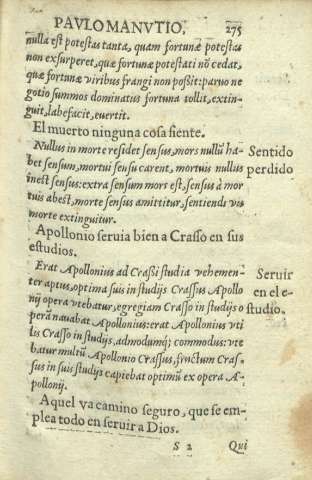 PAVLO MANVTIO, 275
nulla est potestas tanta, quam fortunæ potestas
non exsurperet, quæ fortunæ potestati nō cedat,
quæ fortunæ viribus frangi non poßit: paruo ne
gotio summos dominatus fortuna tollit, extin-
guit, labefacit, euertit.
El muerto ninguna cosa siente.
Nullus in morte residet sensus, mors nullū ha
bet sensum, mortui sensu carent, mortuis nullus
inest sensus: extra sensum mors est, sensus à mor
tuis abest, morte sensus amittitur, sentiendi vis
morte extinguitur.
Sentido
perdido
Apollonio seruia bien a Crasso en sus
estudios.
Erat Apollonius ad Craßi studia vehemen-
ter aptus, optima suis in studijs Crassus Apollo
nij opera vtebatur, egregiam Crasso in studijs o
perā nauabat Apollonius: erat Apollonius vti
lis Crasso in studijs, admodumq; commodus: vte
batur multū Apollonio Crassus, fructum Cras-
sus in suis studijs capiebat optimū ex opera A-
pollonij.
Seruir
en el e-
studio.
Aquel va camino seguro, que se em-
plea todo en seruir a Dios.
S 2 Qui